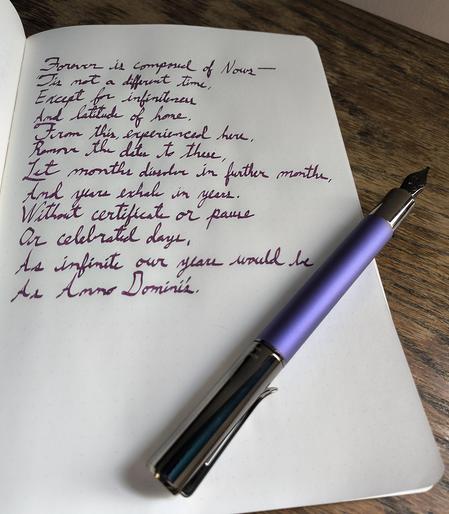 Forever is composed of Nows—
'Tis not a different time,
Except for infiniteness
And latitude of home.
From this, experienced here,
Remove the dates to these,
Let months dissolve in further months,
And years exhale in years.
Without certificate or pause
Or celebrated days,
As infinite our years would be
As Anno Dominis.